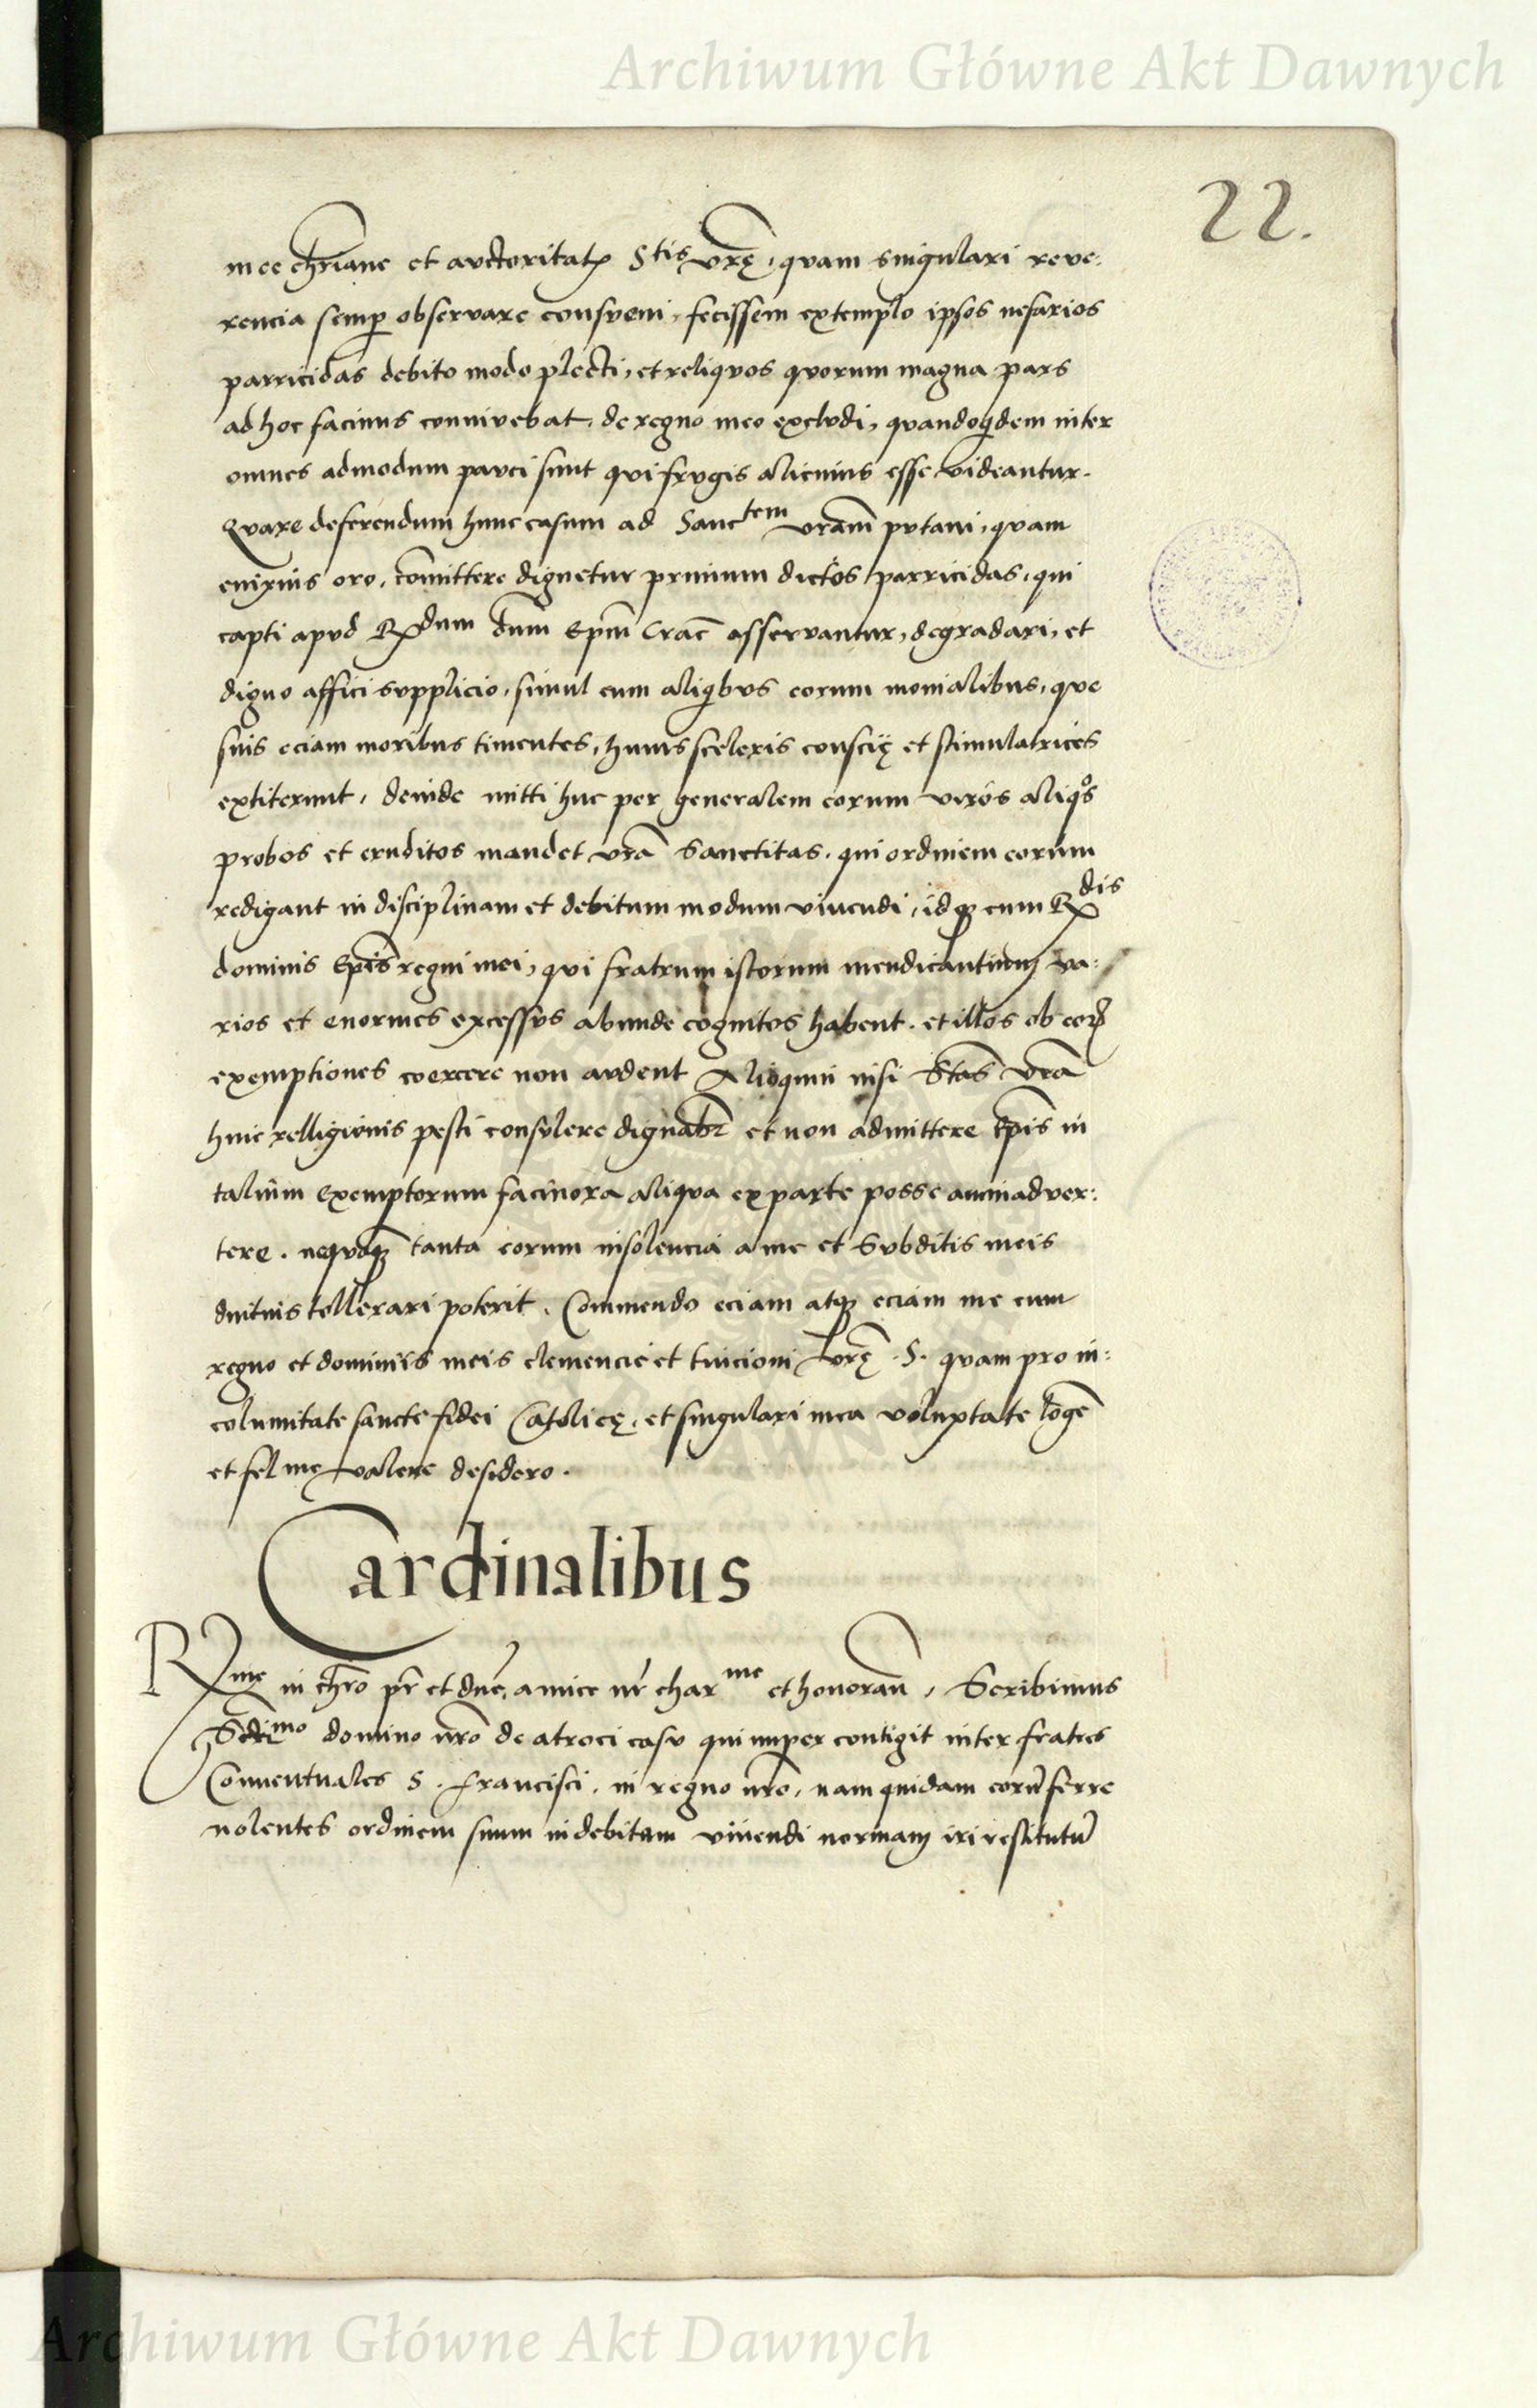 Archiwum Główne Akt Dawnych
22.
mee chr̃iane et avctoritatꝭ Stis vrę, qvam singulari reve:
rencia semꝑ observare consveni, fecissem extemplo ipsos nefarios
parricidas debito modo plecti, et reliqvos qvorum magna pars
ad hoc facinus connivebat, de regno meo exclvdi, qvandoqdem inter
omnes admodum pavci sunt qvi frvgis alicuius esse videantur.
Qvare deferendum hunc casum ad Sanctem vram̃ pvtavi, qvam
enixius oro, com̃ittere dignetur primum dictos parricidas, qui
capti apvd Rdum dnm̃ Ep̃m Crac̃ asservantur, degradari, et
digno affici svpplicio, simul cum aliqbvs eorum monialibus, qve
suis eciam moribus timentes, huius sceleris conscię et stimulatrices
extiterunt, deinde mitti huc per generalem eorum viros aliqos
probos et eruditos mandet vrã Sanctitas, qui ordinem eorum
redigant in disciplinam et debitum modum vivendi, idqꝫ cum Rdis
dominis Ep̃is regni mei, qvi fratrum istorum mendicantium va:
rios et enormes excessvs abunde cognitos habent, et illos ob eorꝝ
exemptiones coercere non avdent Alioquin nisi Stas̃ vrã
huic relligionis pesti consvlere dignabr̃ et non admittere Ep̃is in
talium exemptorum facinora aliqva ex parte posse animadver:
tere, neqvaqꝫ tanta eorum insolencia a me et Svbditis meis
diutius tollerari poterit. Commendo eciam atqꝫ eciam me cum
regno et dominiis meis clemencie et tuicioni vrę .S. qvam pro in:
columitate sancte fidei Catolicę, et singulari mea voluptate lõge
et felme valere desidero.
Cardinalibus
Rme in chr̃o pr̃ et dnẽ, amice nr̃ charme et honoran̄, Scribimus
Scti͠mo domino nrõ de atroci casv qui nuper contigit inter fratres
Conventuales S. Francisci, in regno nrõ, nam quidam eorũ ferre
nolentes ordinem suum in debitam vivendi normam iri restitutũ
Archiwum Główne Akt Dawnych